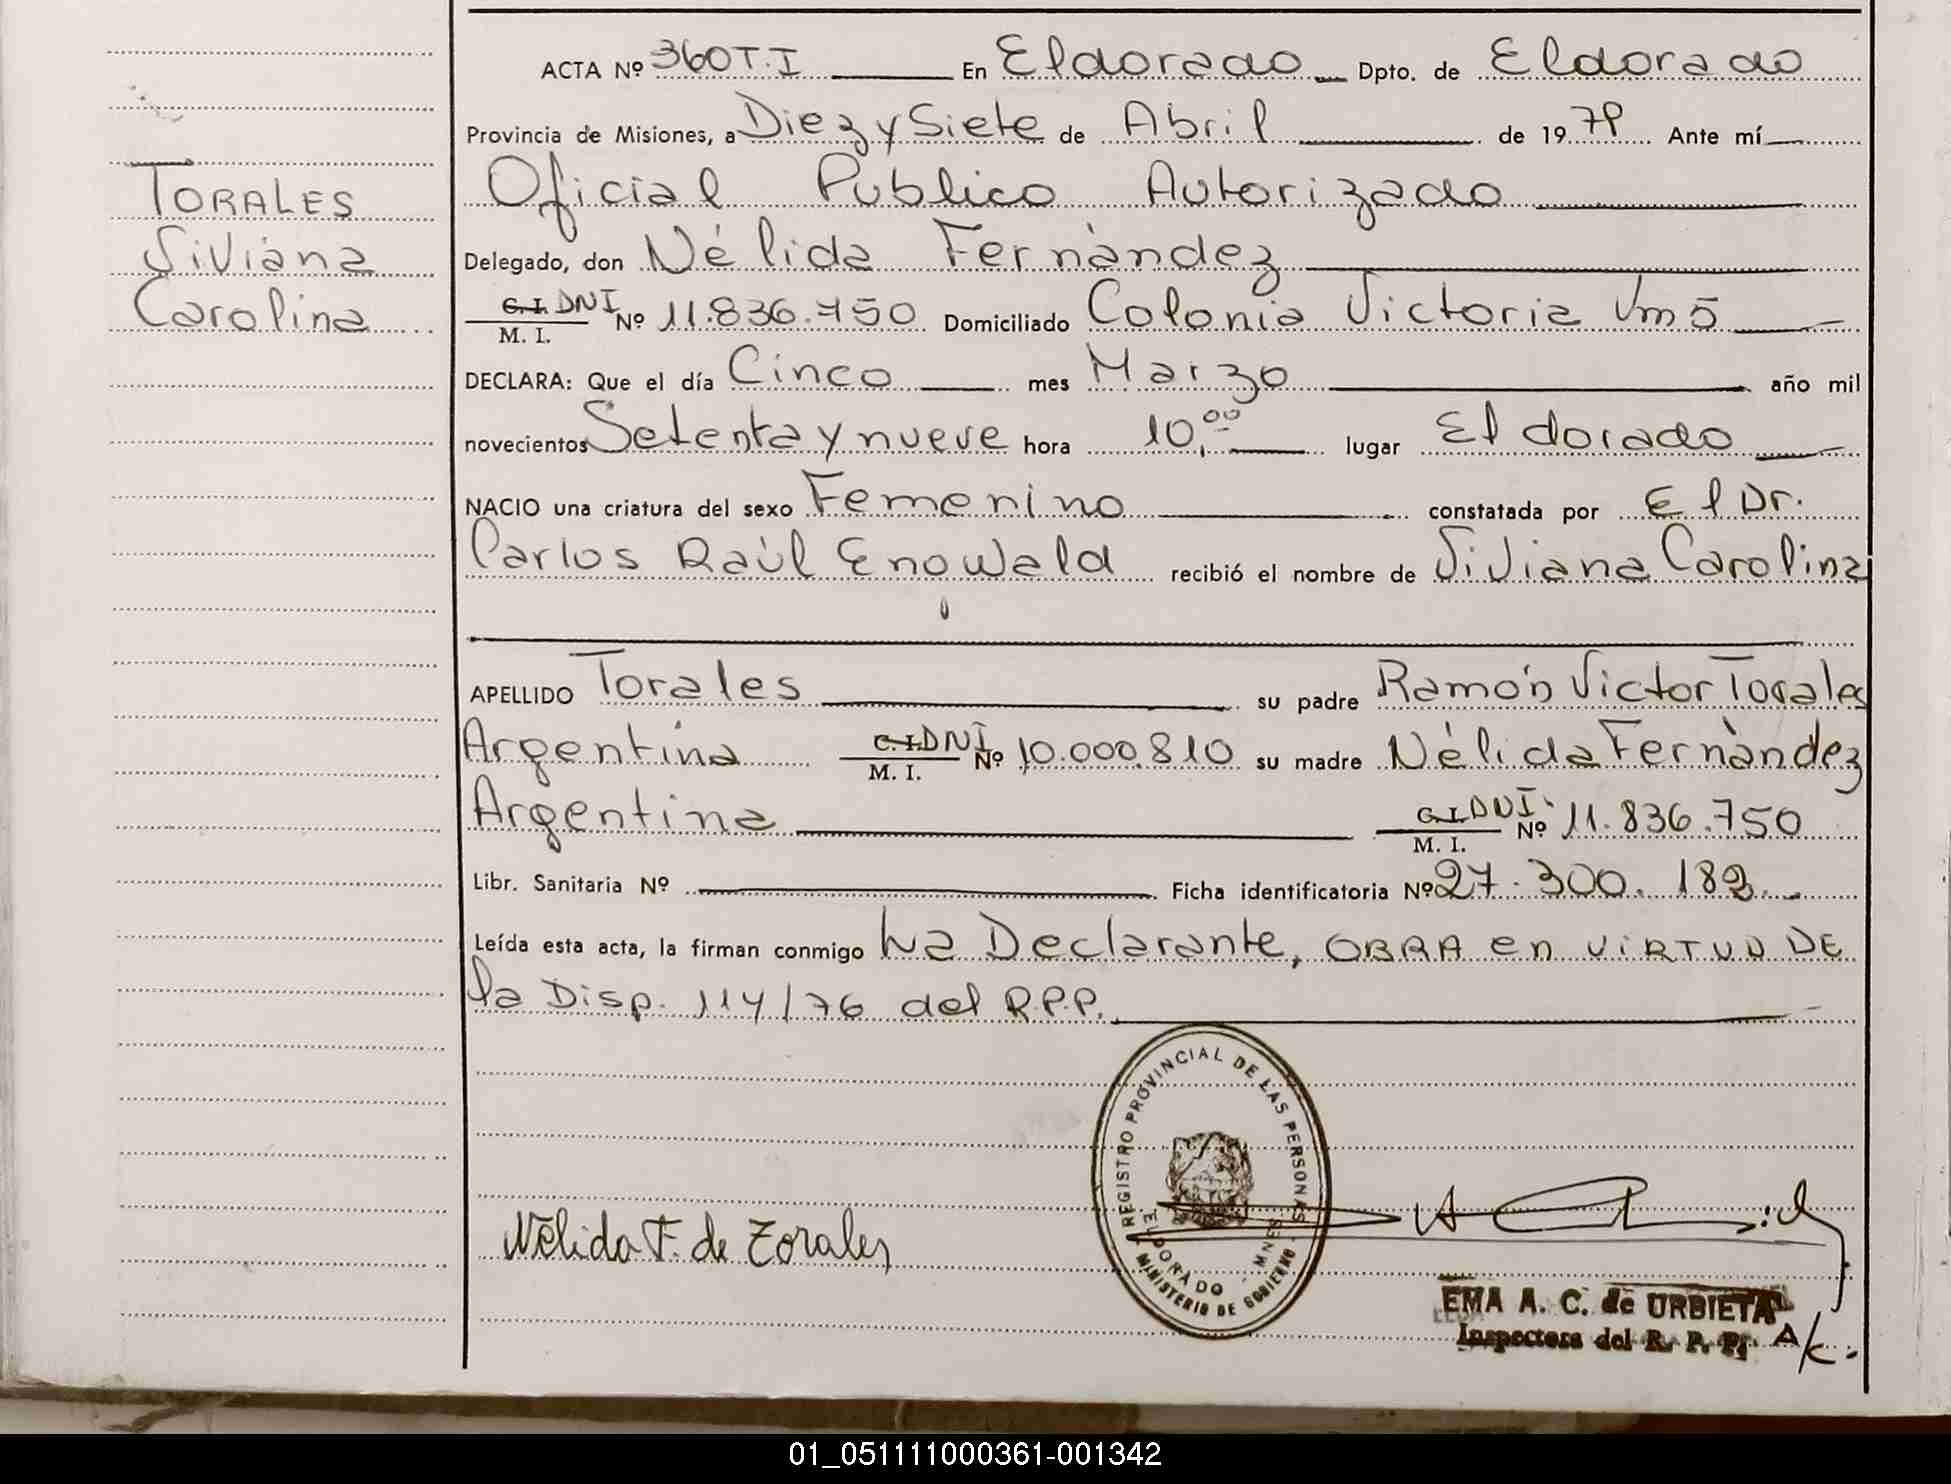 ACTA Nº 360 T.I En Eldorado Dpto. de Eldorado
Provincia de Misiones, a Diez y Siete de Abril de 19 79 Ante mí
TORALES
Oficial Publico Autorizado
Viviana
Delegado, don Nélida Fernàndez
Carolina
C.I. DNI Nº 11.836.750 Domiciliado Colonia Victoria Km5
M. I.
DECLARA: Que el día Cinco mes Marzo año mil
novecientos Setenta y nueve hora 10,00 lugar Eldorado
NACIO una criatura del sexo Femenino constatada por El Dr.
Carlos Raúl Enowald recibió el nombre de Viviana Carolina
APELLIDO Torales su padre Ramón Victor Torales
Argentina C.I. DNI Nº 10.000.810 su madre Nélida Fernàndez
M. I.
Argentina C.I. DNI. Nº 11.836.750
M. I.
Libr. Sanitaria Nº Ficha identificatoria Nº 27.300.182
Leída esta acta, la firman conmigo La Declarante, OBRA en VIRTUD DE
la Disp. 114/76 del R.P.P.
REGISTRO PROVINCIAL DE LAS PERSONAS
ELDORADO - MNES
MINISTERIO DE GOBIERNO
Nélida F. de Torales
EMA A. C. de URBIETA
Inspectora del R. P. P. A/c.
01_051111000361-001342